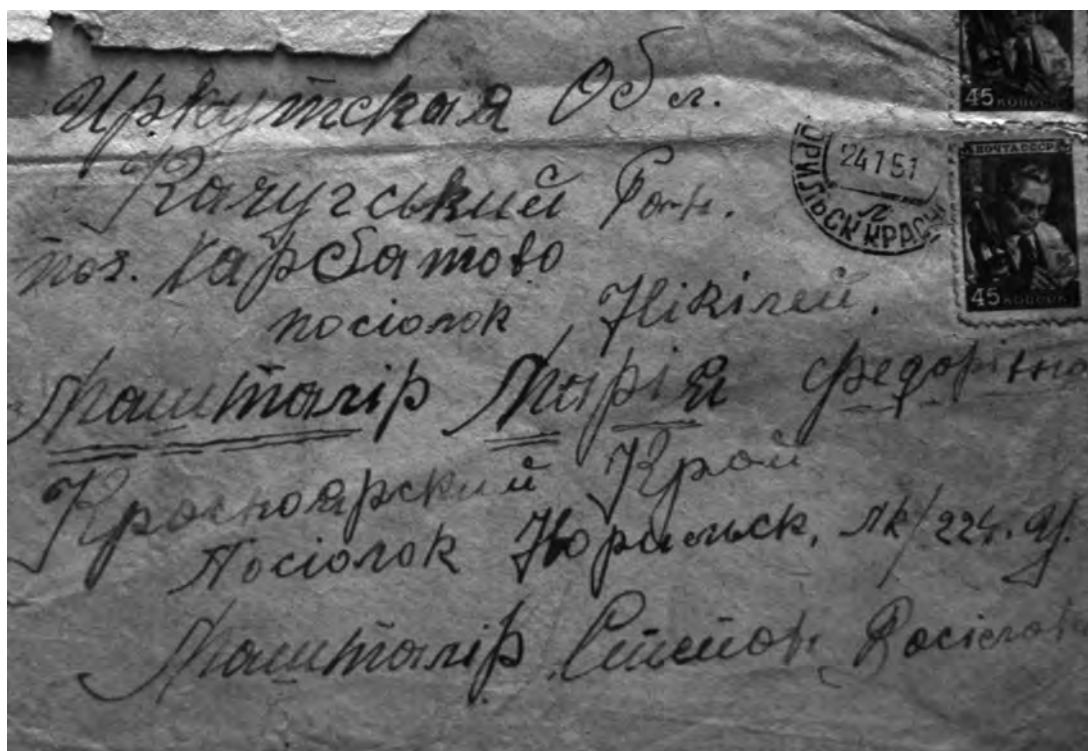 Иркутская Обл.
Качугський Рай-н.
поч. Харбатово
посіолок Нікілей.
Машталір Марія Федорівна
Красноярский Край
Посіолок Норильск, лк/224.
Машталір Степан
45 КОПЕЕК
ПОЧТА СССР
45 КОПЕЕК
24 7 51
ОРИЛЬСК КРАСН